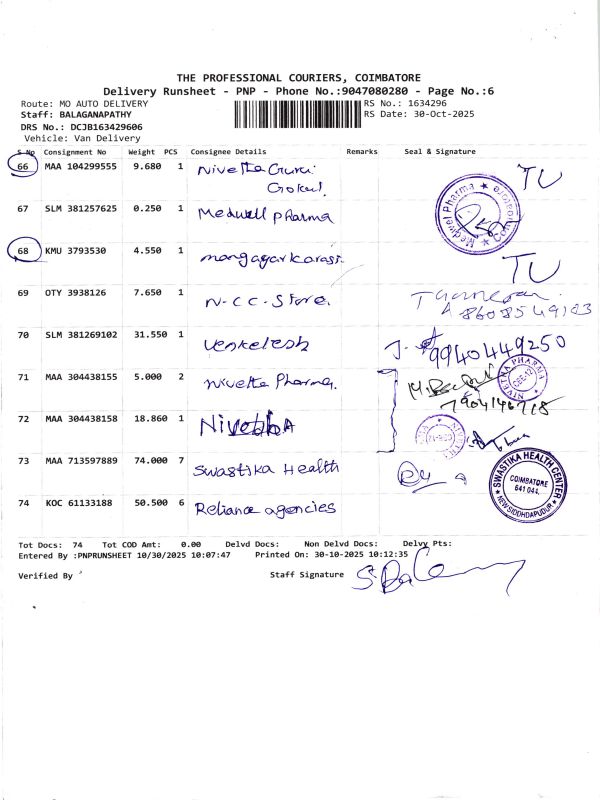 THE PROFESSIONAL COURIERS, COIMBATORE
Delivery Runsheet - PNP - Phone No.:9047080280 - Page No.:6
Route: MO AUTO DELIVERY RS No.: 1634296
Staff: BALAGANAPATHY RS Date: 30-Oct-2025
DRS No.: DCJB163429606
Vehicle: Van Delivery
S No Consignment No Weight PCS Consignee Details Remarks Seal & Signature
66 MAA 104299555 9.680 1 Nivetha Guru TU
Gokul
67 SLM 381257625 0.250 1 Medwell pharma Medwel Pharma ★ Coimbatore ★
68 KMU 3793530 4.550 1 mangayarkarasi TU
69 OTY 3938126 7.650 1 N.C.C. Store.
8608549183
70 SLM 381269102 31.550 1 Venkatesh 9940449250
71 MAA 304438155 5.000 2 Nivetha Pharma. NIVETHA PHARMA CBE-12
7904146718
72 MAA 304438158 18.860 1 Nivetha
73 MAA 713597889 74.000 7 Swastika Health SWASTIKA HEALTH CENTER COIMBATORE 641 044. NEW SIDDHAPUDUR
74 KOC 61133188 50.500 6 Reliance agencies
Tot Docs: 74 Tot COD Amt: 0.00 Delvd Docs: Non Delvd Docs: Delvy Pts:
Entered By :PNPRUNSHEET 10/30/2025 10:07:47 Printed On: 30-10-2025 10:12:35
Verified By Staff Signature